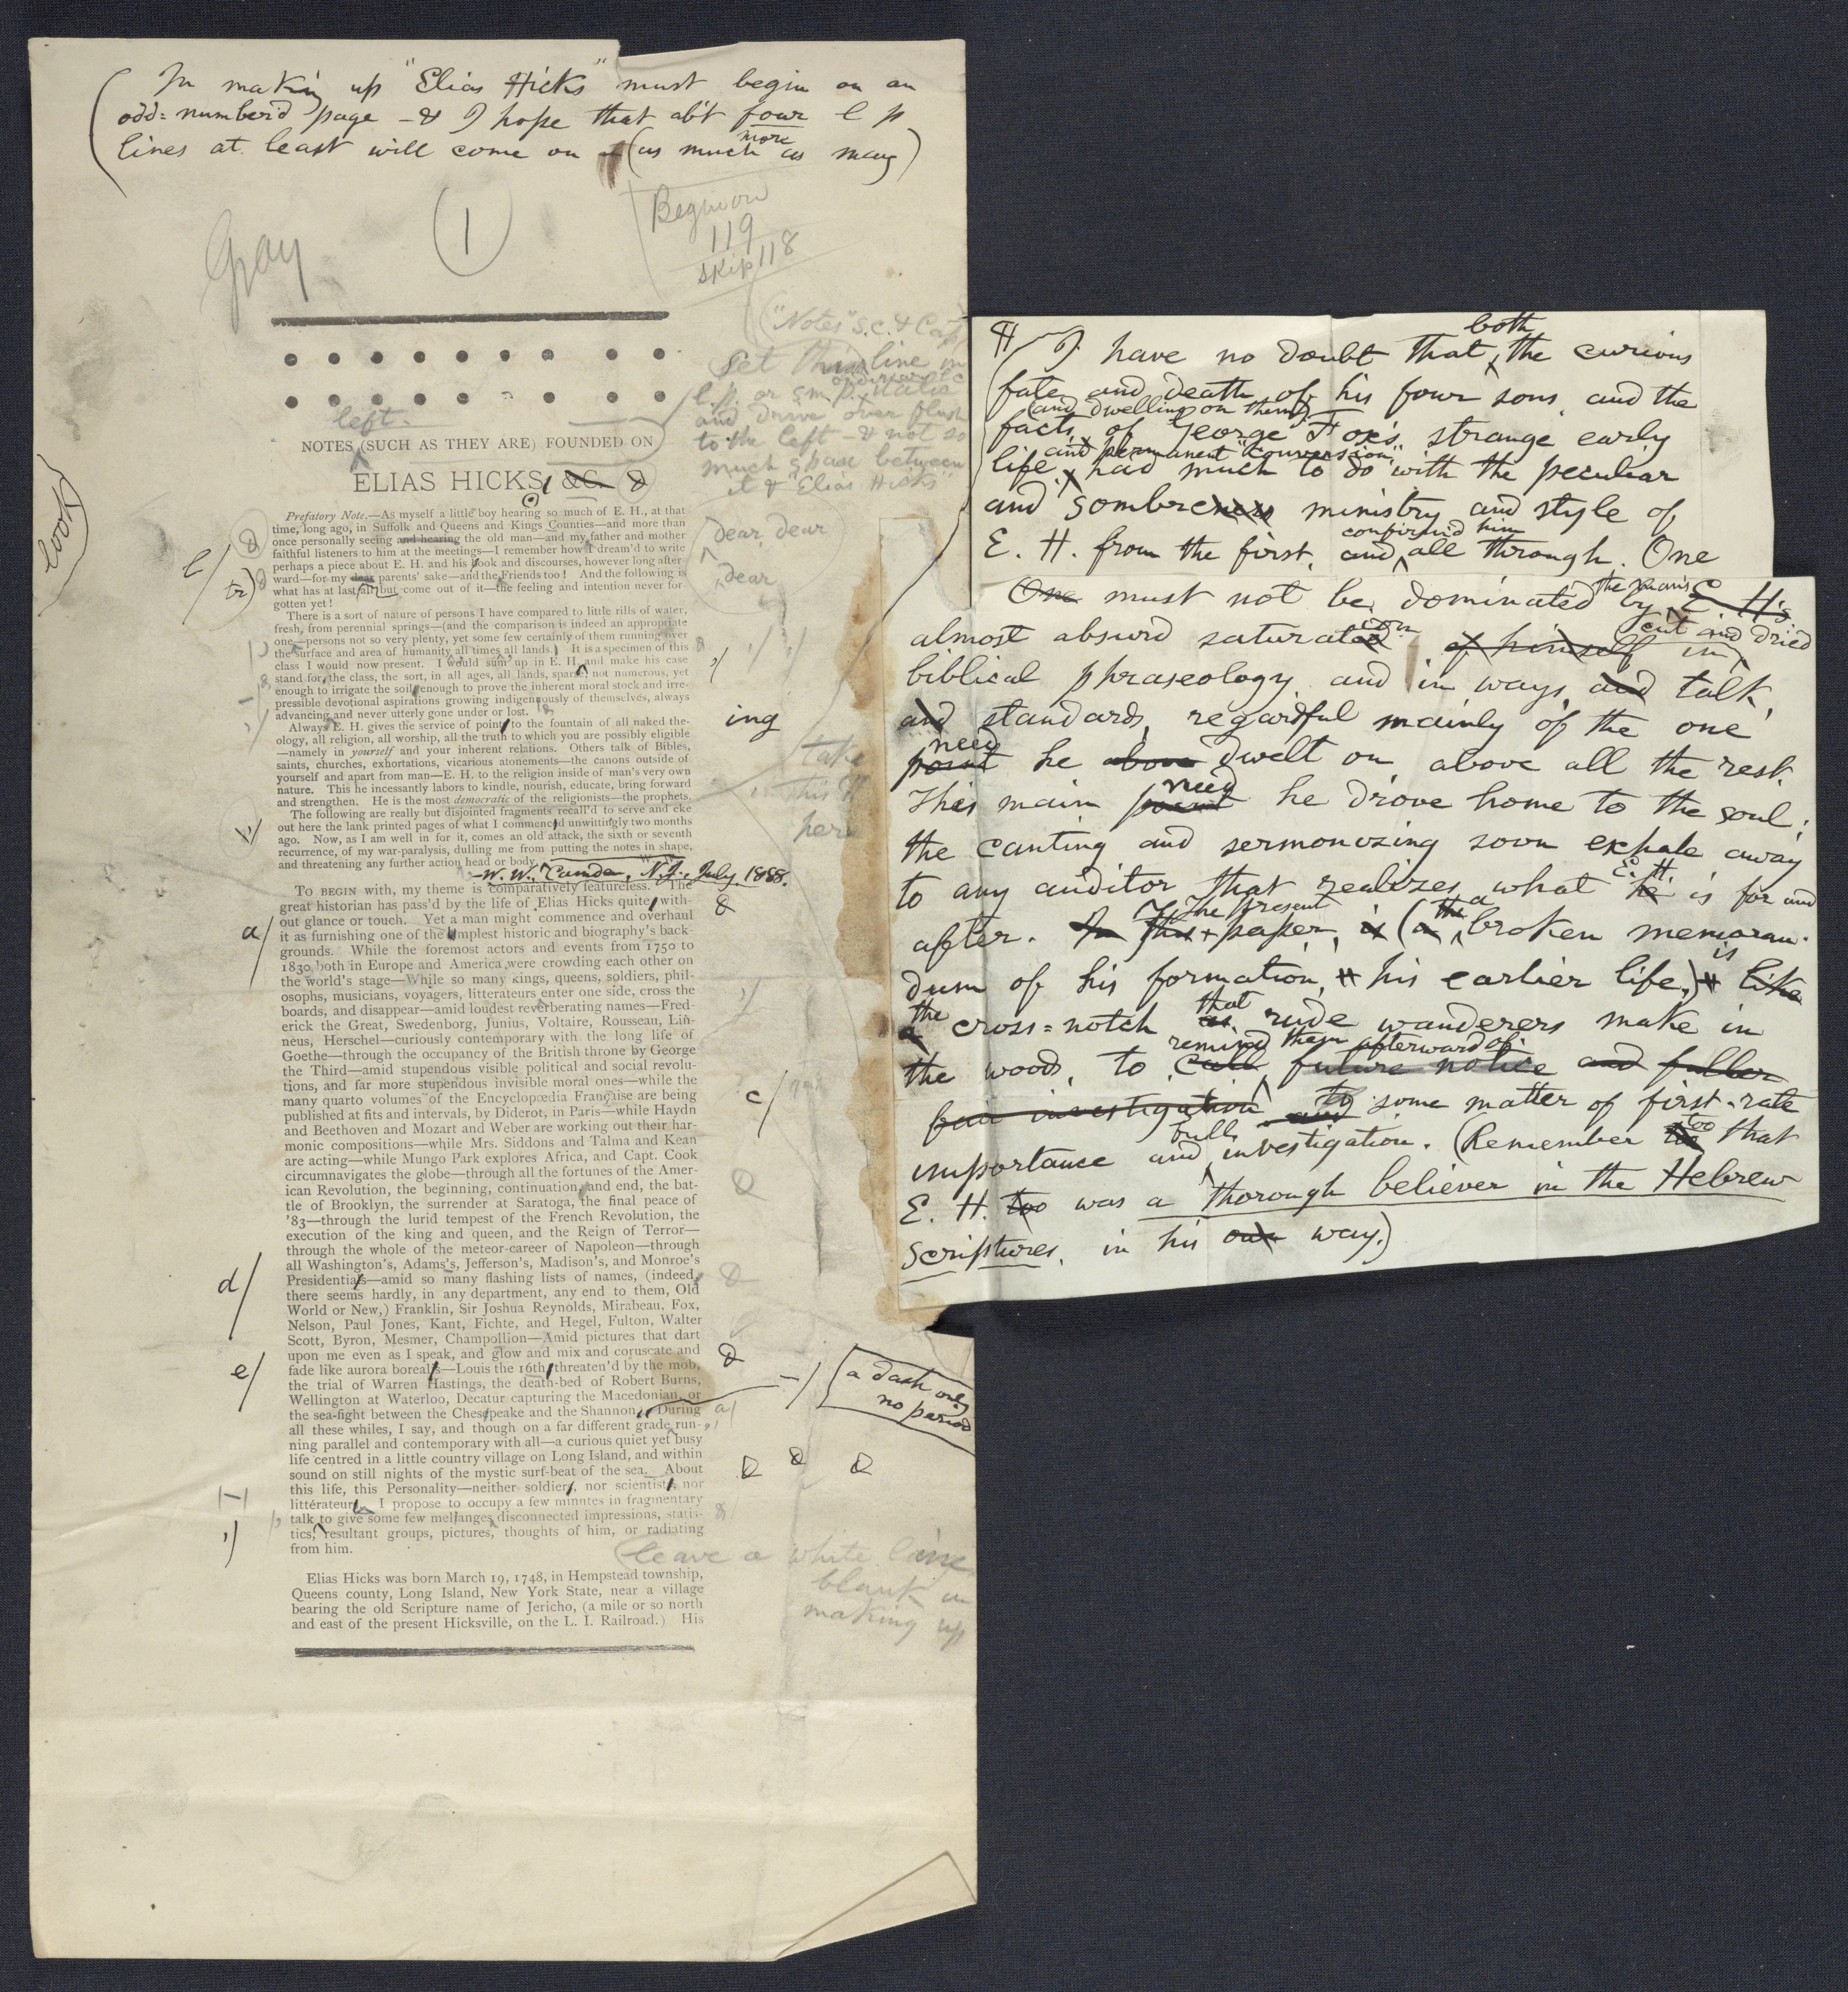 (In making up "Elias Hicks" must begin on an
odd-number'd page — & I hope that ab't four l p
lines at least will come on (as much more as may)
Gray
1
Begin on
119
skip 118
"Notes" s.c. &
Set this line in
l.p. or s m.p.
and drive over flush
to the left — & not so
much space between
it & "Elias Hicks"
left
NOTES (SUCH AS THEY ARE) FOUNDED ON
ELIAS HICKS, &C.
proof
Prefatory Note.—As myself a little boy hearing so much of E. H., at that
time, long ago, in Suffolk and Queens and Kings Counties—and more than
once personally seeing and hearing the old man—and my father and mother
faithful listeners to him at the meetings—I remember how I dream'd to write
perhaps a piece about E. H. and his look and discourses, however long after-
ward—for my dear parents' sake—and the Friends too! And the following is
what has at last all but come out of it—the feeling and intention never for-
gotten yet!
dear dear
dear
l/
tr)
There is a sort of nature of persons I have compared to little rills of water,
fresh, from perennial springs—(and the comparison is indeed an appropriate
one—persons not so very plenty, yet some few certainly of them running over
the surface and area of humanity all times all lands.) It is a specimen of this
class I would now present. I would sum up in E. H. and make his case
stand for the class, the sort, in all ages, all lands, sparse not numerous, yet
enough to irrigate the soil, enough to prove the inherent moral stock and irre-
pressible devotional aspirations growing indigenously of themselves, always
advancing and never utterly gone under or lost.
Always E. H. gives the service of point to the fountain of all naked the-
ology, all religion, all worship, all the truth to which you are possibly eligible
—namely in yourself and your inherent relations. Others talk of Bibles,
saints, churches, exhortations, vicarious atonements—the canons outside of
yourself and apart from man—E. H. to the religion inside of man's very own
nature. This he incessantly labors to kindle, nourish, educate, bring forward
and strengthen. He is the most democratic of the religionists—the prophets.
ing
take
this ¶
here
The following are really but disjointed fragments recall'd to serve and eke
out here the lank printed pages of what I commenc'd unwittingly two months
ago. Now, as I am well in for it, comes an old attack, the sixth or seventh
recurrence, of my war-paralysis, dulling me from putting the notes in shape,
and threatening any further action head or body.
—W. W., Camden, N.J., July, 1888.
TO BEGIN with, my theme is comparatively featureless. The
great historian has pass'd by the life of Elias Hicks quite with-
out glance or touch. Yet a man might commence and overhaul
it as furnishing one of the amplest historic and biography's back-
grounds. While the foremost actors and events from 1750 to
1830 both in Europe and America were crowding each other on
the world's stage—While so many kings, queens, soldiers, phil-
osophs, musicians, voyagers, litterateurs enter one side, cross the
boards, and disappear—amid loudest reverberating names—Fred-
erick the Great, Swedenborg, Junius, Voltaire, Rousseau, Lin-
neus, Herschel—curiously contemporary with the long life of
Goethe—through the occupancy of the British throne by George
the Third—amid stupendous visible political and social revolu-
tions, and far more stupendous invisible moral ones—while the
many quarto volumes of the Encyclopædia Française are being
published at fits and intervals, by Diderot, in Paris—while Haydn
and Beethoven and Mozart and Weber are working out their har-
monic compositions—while Mrs. Siddons and Talma and Kean
are acting—while Mungo Park explores Africa, and Capt. Cook
circumnavigates the globe—through all the fortunes of the Amer-
ican Revolution, the beginning, continuation, and end, the bat-
tle of Brooklyn, the surrender at Saratoga, the final peace of
'83—through the lurid tempest of the French Revolution, the
execution of the king and queen, and the Reign of Terror—
through the whole of the meteor-career of Napoleon—through
all Washington's, Adams's, Jefferson's, Madison's, and Monroe's
Presidentials—amid so many flashing lists of names, (indeed,
there seems hardly, in any department, any end to them, Old
World or New,) Franklin, Sir Joshua Reynolds, Mirabeau, Fox,
Nelson, Paul Jones, Kant, Fichte, and Hegel, Fulton, Walter
Scott, Byron, Mesmer, Champollion—Amid pictures that dart
upon me even as I speak, and glow and mix and coruscate and
fade like aurora borealis—Louis the 16th threaten'd by the mob,
the trial of Warren Hastings, the death-bed of Robert Burns,
Wellington at Waterloo, Decatur capturing the Macedonian, or
the sea-fight between the Chesapeake and the Shannon. During
all these whiles, I say, and though on a far different grade, run-
ning parallel and contemporary with all—a curious quiet yet busy
life centred in a little country village on Long Island, and within
sound on still nights of the mystic surf-beat of the sea. About
this life, this Personality—neither soldier, nor scientist, nor
littérateur, I propose to occupy a few minutes in fragmentary
talk to give some few melanges, disconnected impressions, statis-
tics, resultant groups, pictures, thoughts of him, or radiating
from him.
a/
c/
d/
e/
a dash only
no period
(leave a white line
blank in
making up
Elias Hicks was born March 19, 1748, in Hempstead township,
Queens county, Long Island, New York State, near a village
bearing the old Scripture name of Jericho, (a mile or so north
and east of the present Hicksville, on the L. I. Railroad.) His
¶ I have no doubt that both the curious
fate and death of his four sons, and the
facts (and dwelling on them) of George Fox's strange early
life, and permanent "conversion," had much to do with the peculiar
and sombreness ministry and style of
E. H. from the first, and confirm'd him all through. One
One must not be dominated by the man's E. H's
almost absurd saturation of himself in cut and dried
biblical phraseology, and in ways, and talk,
and standards, regardful mainly of the one
point need he above dwelt on above all the rest.
This main point need he drove home to the soul;
the canting and sermonizing soon exhale away
to any auditor that realizes what he E. H. is for and
after. In this The present paper, is (a the a broken memoran-
dum of his formation, his earlier life,) is like
a the cross-notch as that rude wanderers make in
the woods, to call remind them afterward of future notice and fuller
fair investigation and to some matter of first-rate
importance and full investigation. (Remember too that
E. H. too was a thorough believer in the Hebrew
Scriptures, in his own way.)